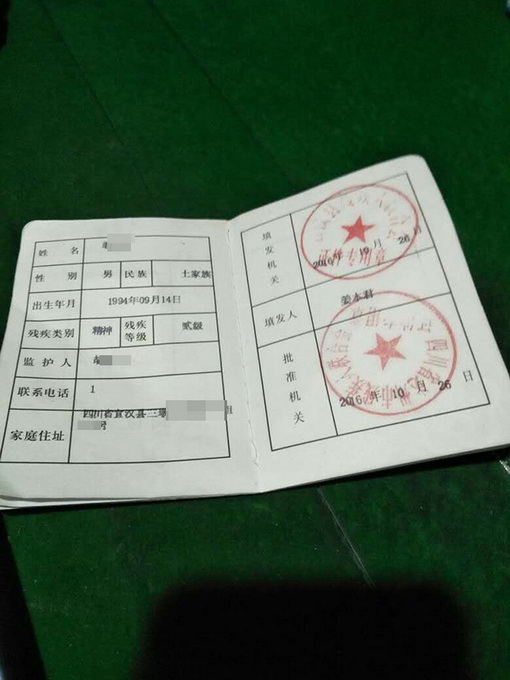 姓 名
性 别 男 民族 土家族
出生年月 1994年09月14日
残疾类别 精神 残疾等级 贰级
监 护 人
联系电话 1
家庭住址 四川省宣汉县三
填发机关
2016 年 10 月 26 日
填发人 姜本君
批准机关
2016 年 10 月 26 日